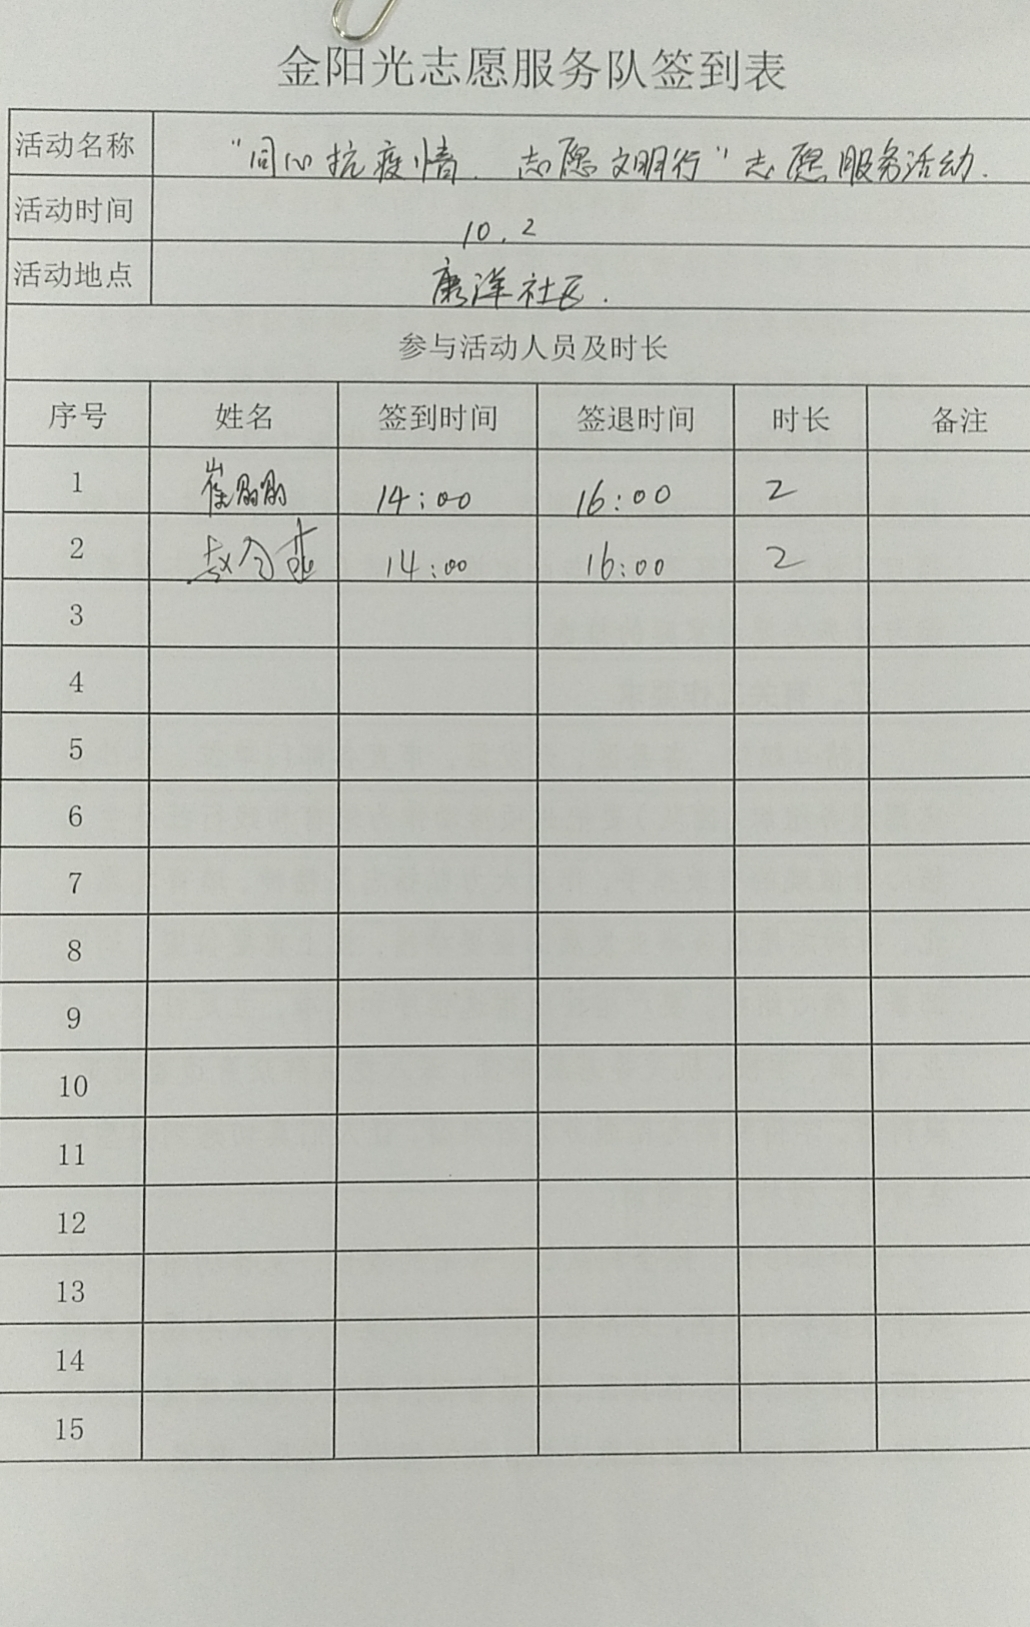 金阳光志愿服务队签到表
活动名称 "同心抗疫情. 志愿文明行"志愿服务活动.
活动时间 10.2
活动地点 康洋社区.
参与活动人员及时长
序号 姓名 签到时间 签退时间 时长 备注
1 崔朋朋 14:00 16:00 2
2 赵 14:00 16:00 2
3
4
5
6
7
8
9
10
11
12
13
14
15